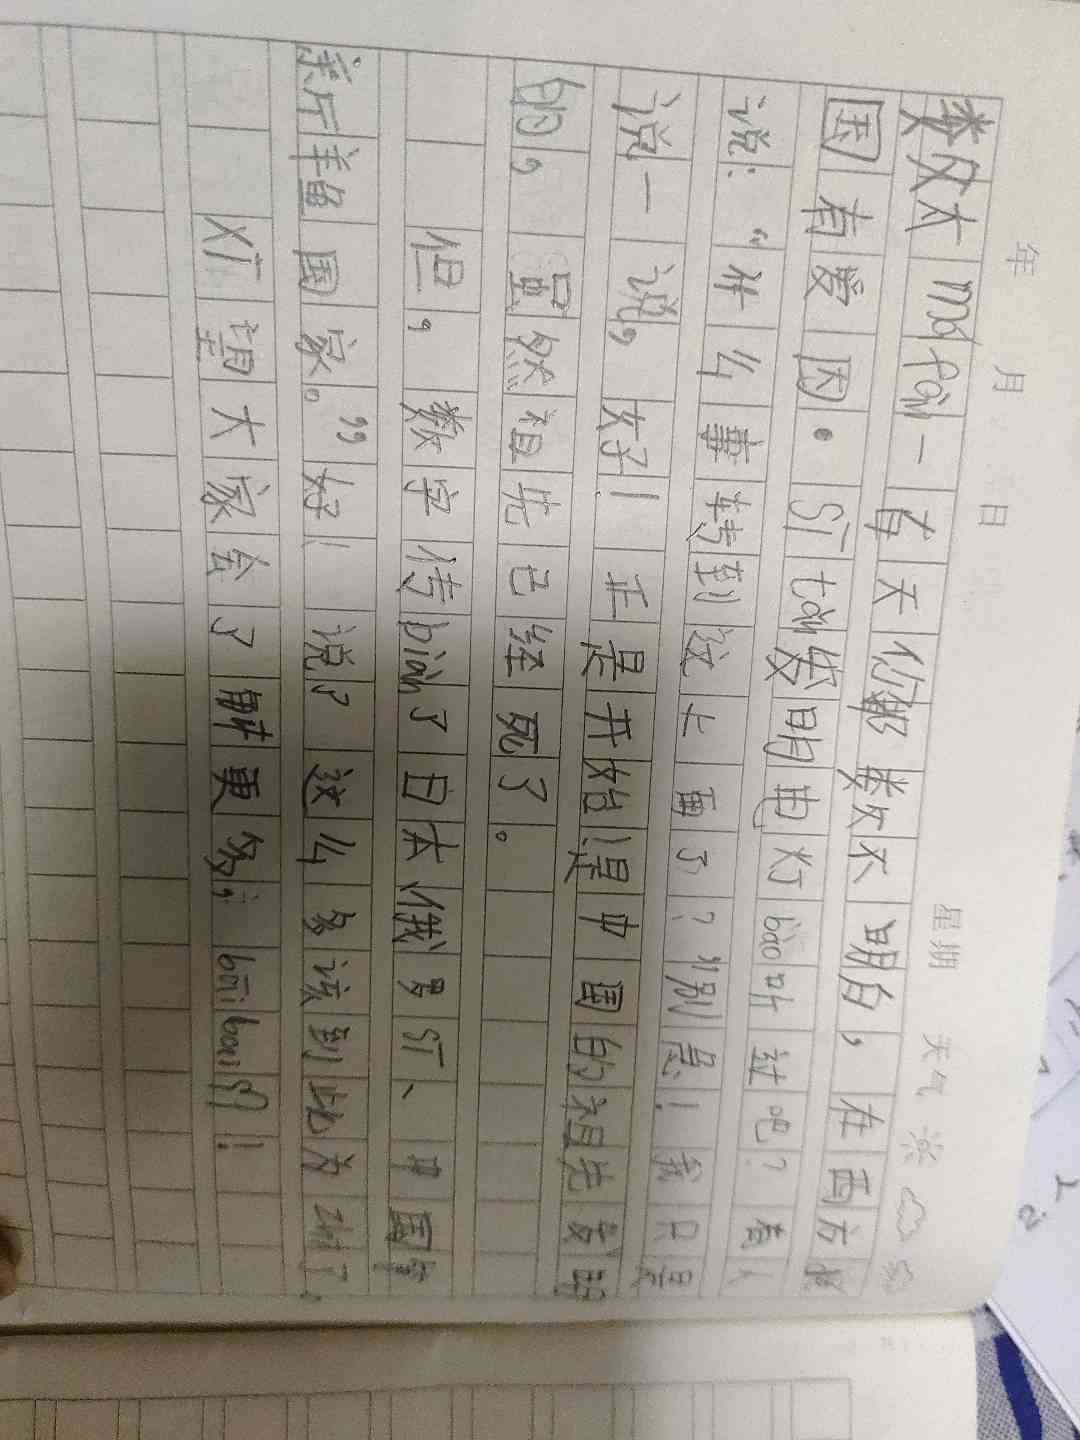 年 月 日 星期 天气
数太 má fán 一直天你都 数不明白，在西方
国有爱因·sī tǎn 发明电灯 bào 听过吧？有人
说：“什么事转到这上面了？别急！我只是
说一说，好！正是开始是中国的祖先发明
的，虽然祖先已经死了。
但，数字传 biàn 了日本俄罗 sī、中国
斤羊鱼国家。”好！说了这么多该到此为 zhǐ 了，
Xī 望大家会了解更多；bāi bai 们！